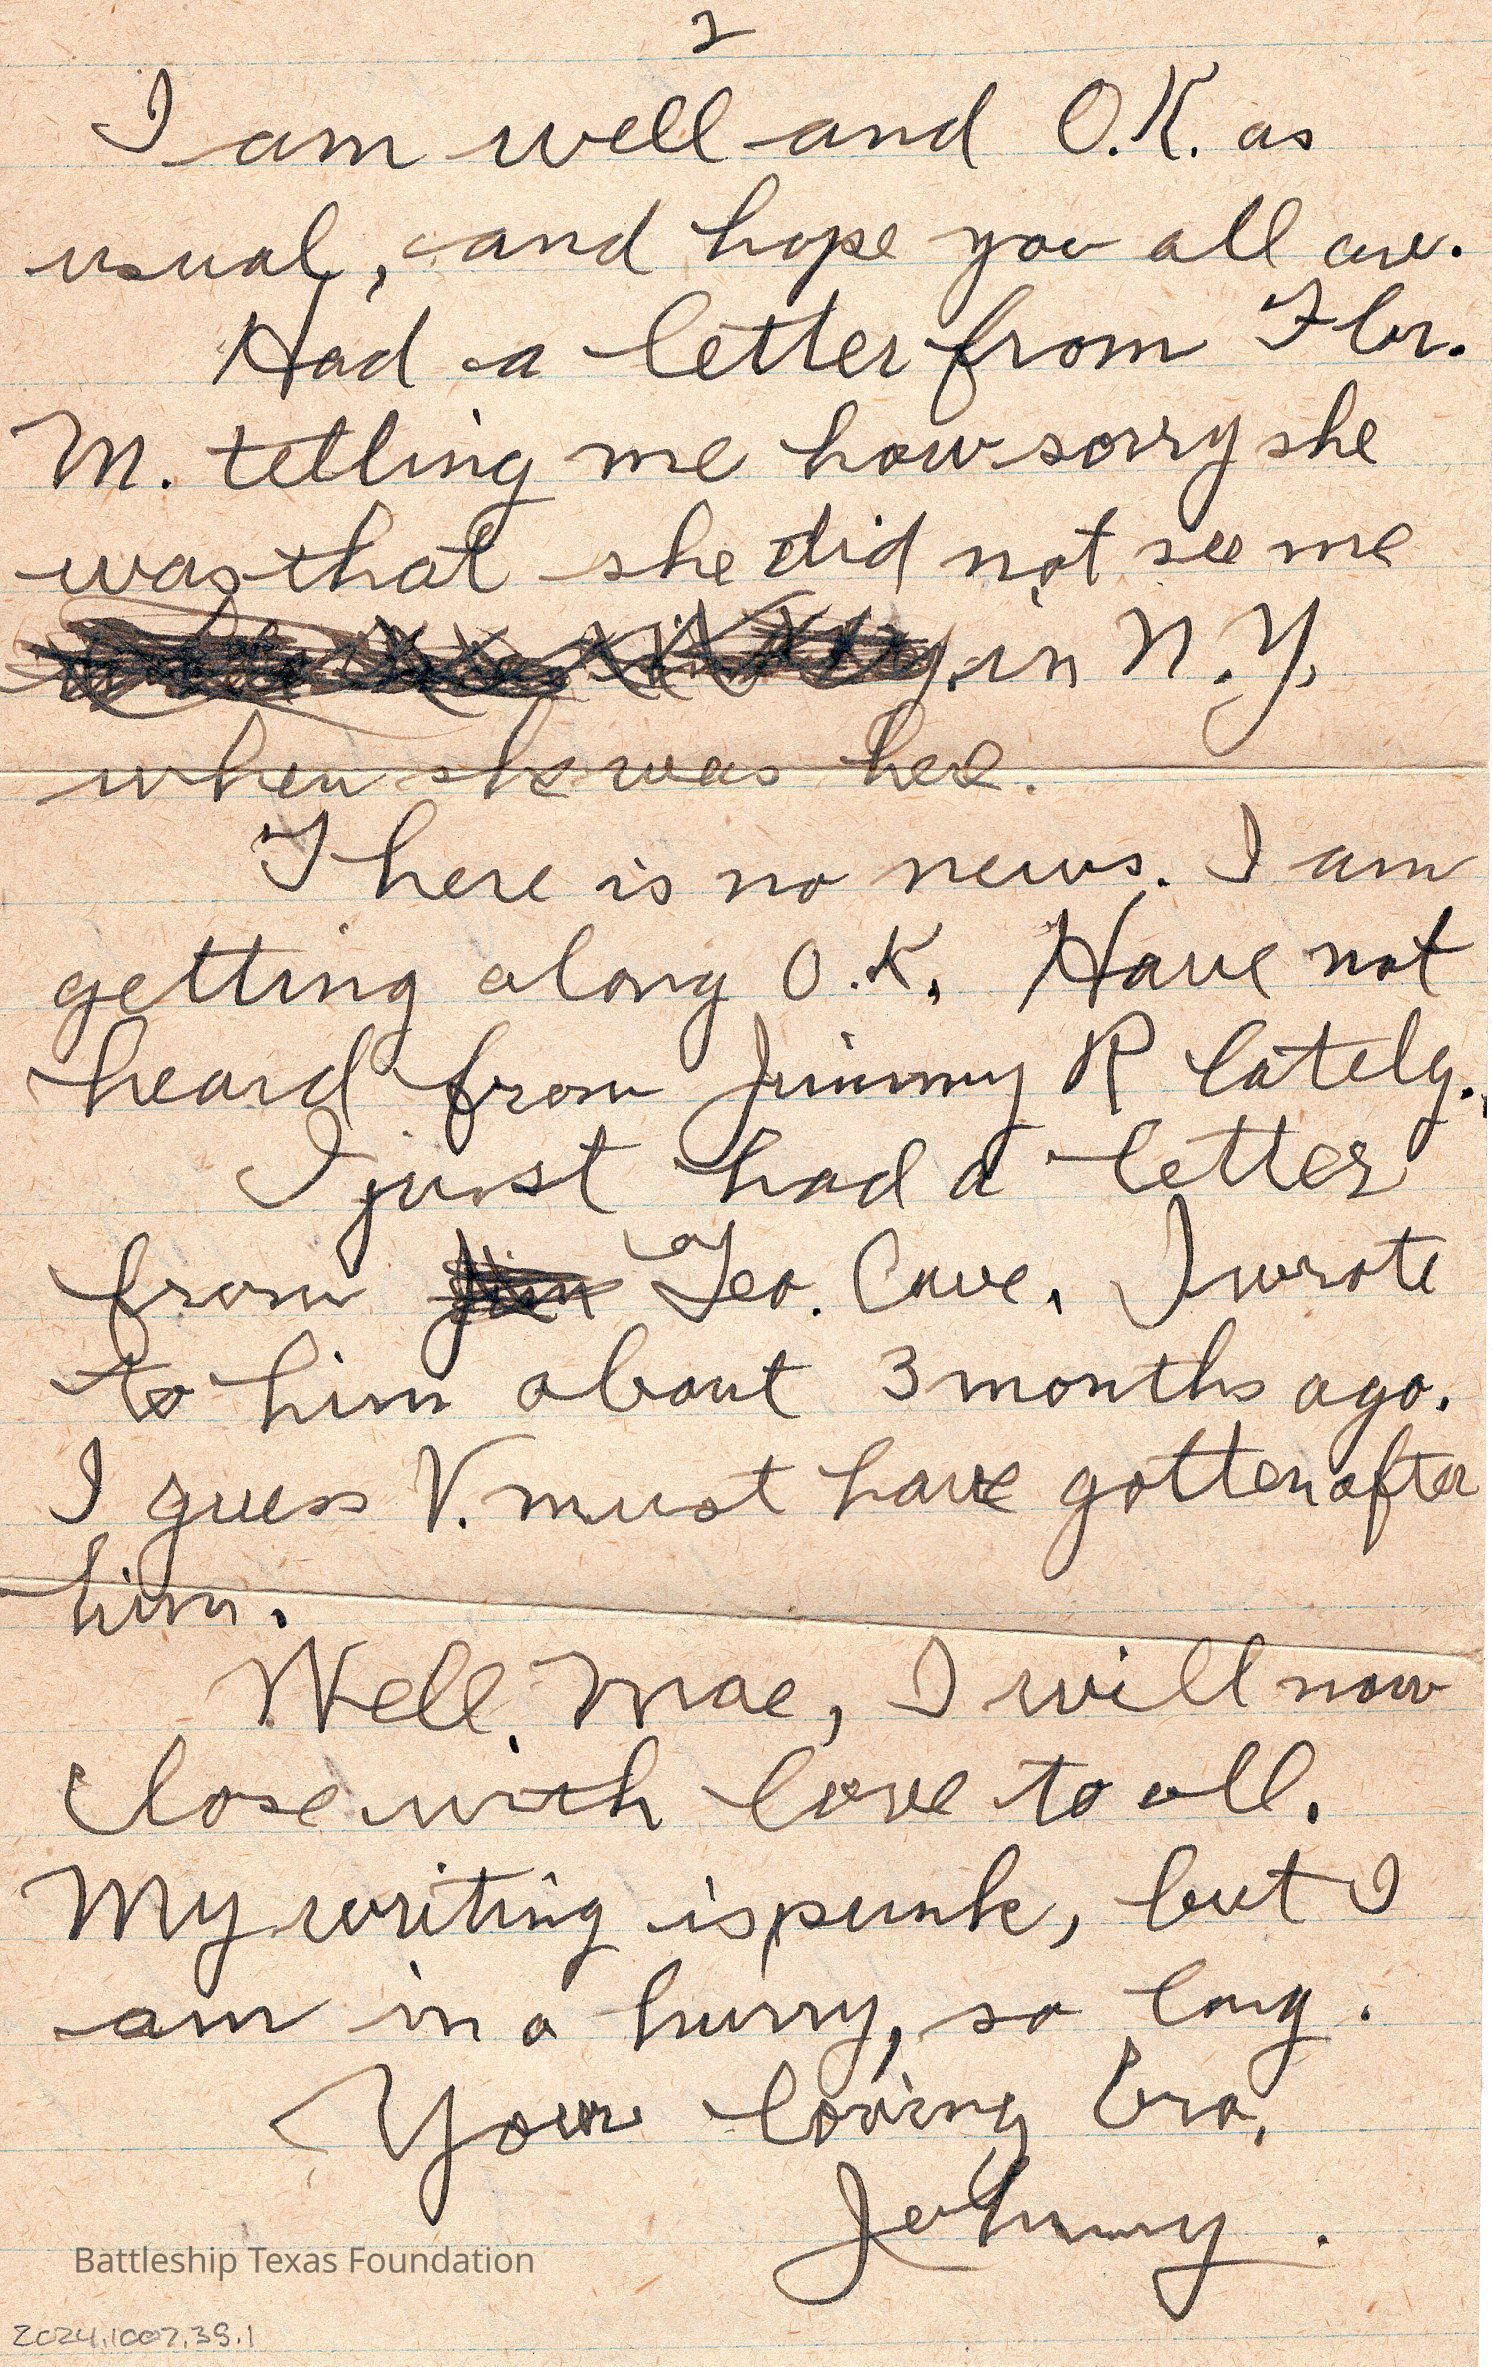 2
I am well and O.K. as
usual, and hope you all are.
Had a letter from Flor.
M. telling me how sorry she
was that she did not see me
in N.Y.
when she was here.
There is no news. I am
getting along O.K. Have not
heard from Jimmy R lately.
I just had a letter
from Geo. Cave. I wrote
to him about 3 months ago.
I guess V. must have gotten after
him.
Well, Mae, I will now
close with love to all.
My writing is punk, but I
am in a hurry, so long.
Your loving bro,
Johnny.
Battleship Texas Foundation
2024.1007.39.1